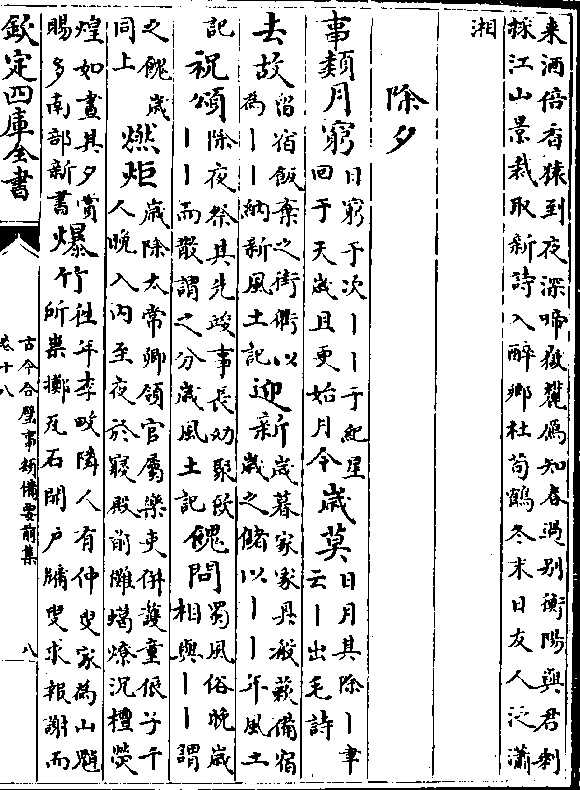 来酒倍香猿到夜深啼嶽麓鴈知春過别衡陽與君剩
採江山景裁取新詩入醉鄉杜荀鶴冬末日友人泛瀟
湘
除夕
事類月窮日窮于次丨丨于紀星回于天歲且更始月令歲莫日月其除丨聿云丨出毛詩
去故留宿飯棄之街衢以為丨丨納新風土記迎新歲暮家家具殽蔌備宿歲之儲以丨丨年風土
記祝頌除夜祭其先竣事長幼聚飲丨丨而散謂之分歲風土記餽問蜀風俗晚歲相與丨丨謂
之餽歲同上燃炬歲除太常卿領官屬樂吏併護童侲子千人晚入内至夜於寢殿前雎蠟燎沉檀熒
煌如晝其夕賞賜多南部新書爆竹往年李畋隣人有仲叟家為山魈所祟擲瓦石開户牖叟求報謝而
欽定四庫全書
古今合璧事類備要前集
卷十八
八